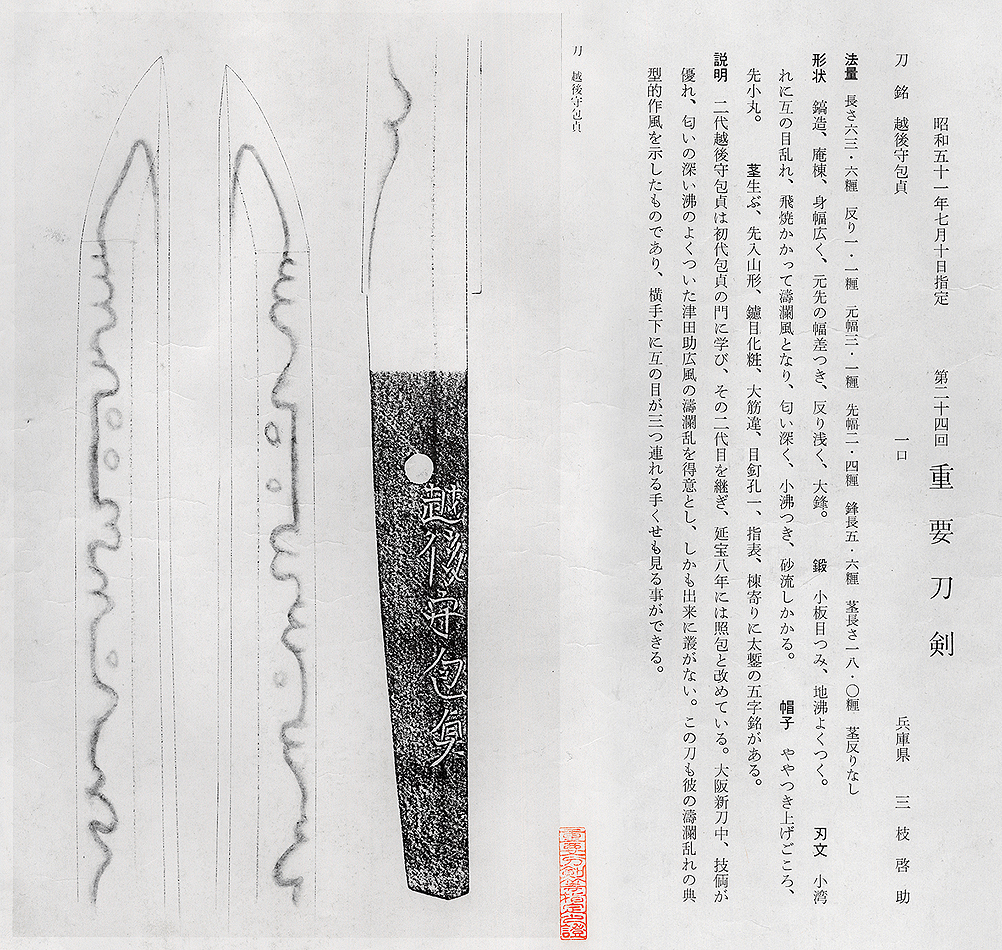 昭和五十一年七月十日指定　第二十四回　重要刀剣
刀　銘　越後守包貞　一口　兵庫県　三枝啓助
法量　長さ六三・六糎　反り一・一糎　元幅三・一糎　先幅二・四糎　鋒長五・六糎　茎長さ一八・〇糎　茎反りなし
形状　鎬造、庵棟、身幅広く、元先の幅差つき、反り浅く、大鋒。　鍛　小板目つみ、地沸よくつく。　刃文　小湾
れに互の目乱れ、飛焼かかって濤瀾風となり、匂い深く、小沸つき、砂流しかかる。　帽子　ややつき上げごころ、
先小丸。　茎生ぶ、先入山形、鑢目化粧、大筋違、目釘孔一、指表、棟寄りに太鏨の五字銘がある。
説明　二代越後守包貞は初代包貞の門に学び、その二代目を継ぎ、延宝八年には照包と改めている。大阪新刀中、技倆が
優れ、匂いの深い沸のよくついた津田助広風の濤瀾乱を得意とし、しかも出来に叢がない。この刀も彼の濤瀾乱れの典
型的作風を示したものであり、横手下に互の目が三つ連れる手くせも見る事ができる。
刀　越後守包貞
越後守包貞
重要刀剣等指定之證